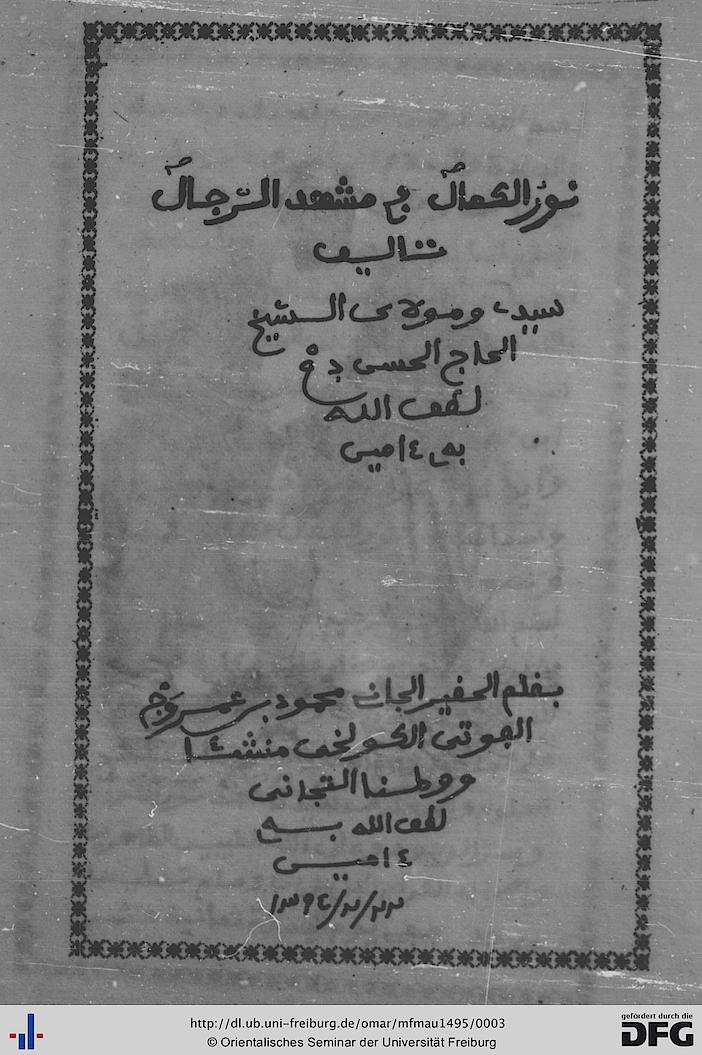 نور الكمال في مشهد الرجال
تاليف
سيدي ومولاي الشيخ
الحاج الحسن
لطف الله
به ءامين
بقلم الحفير الجاني محمود بن عمر
الفوتي الكولخي منشئا
ووطنا التجاني
لطف الله به
ءامين
http://dl.ub.uni-freiburg.de/omar/mfmau1495/0003
© Orientalisches Seminar der Universität Freiburg
gefördert durch die
DFG